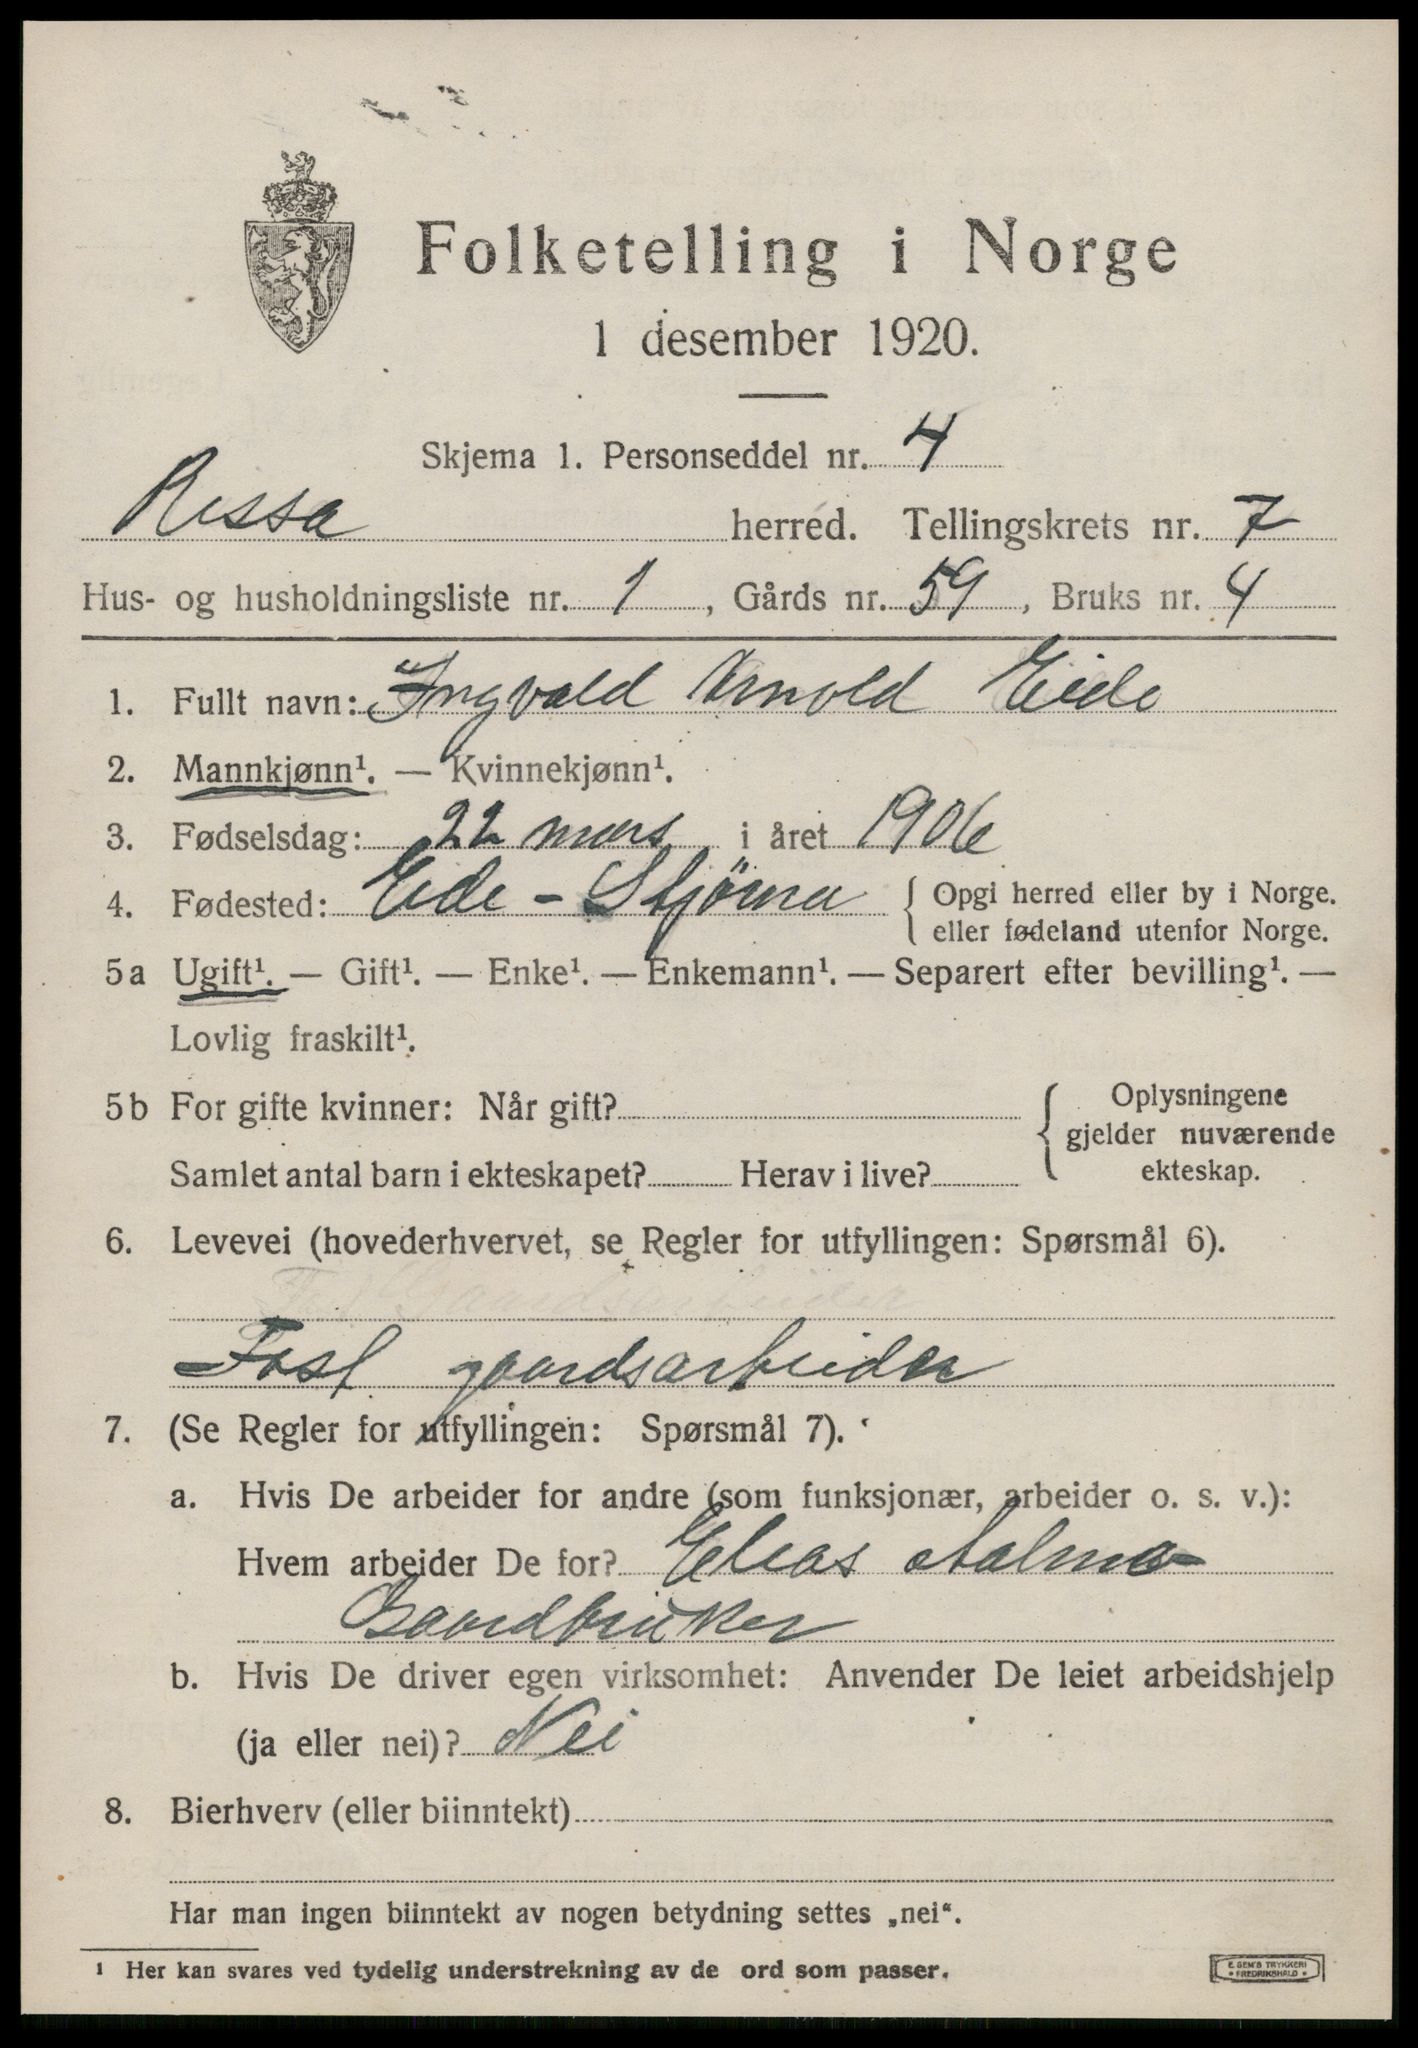 Folketelling i Norge
1 desember 1920.
Skjema 1. Personseddel nr. 4
Rissa herred. Tellingskrets nr. 7
Hus- og husholdningsliste nr. 1, Gårds nr. 59, Bruks nr. 4
1. Fullt navn: Ingvald Arnold Eide
2. Mannkjønn¹. — Kvinnekjønn¹.
3. Fødselsdag: 22 mars i året 1906
4. Fødested: Eide - Stjørna { Opgi herred eller by i Norge.
eller fødeland utenfor Norge.
5a Ugift¹. — Gift¹. — Enke¹. — Enkemann¹. — Separert efter bevilling¹. —
Lovlig fraskilt¹.
5b For gifte kvinner: Når gift? { Oplysningene
gjelder nuværende
Samlet antal barn i ekteskapet? Herav i live? ekteskap.
6. Levevei (hovederhvervet, se Regler for utfyllingen: Spørsmål 6).
Gaardsarbeider
Fast gaardsarbeider
7. (Se Regler for utfyllingen: Spørsmål 7).
a. Hvis De arbeider for andre (som funksjonær, arbeider o. s. v.):
Hvem arbeider De for? Elias
Gaardbruker
b. Hvis De driver egen virksomhet: Anvender De leiet arbeidshjelp
(ja eller nei)? Nei
8. Bierhverv (eller biinntekt)
Har man ingen biinntekt av nogen betydning settes „nei“.
¹ Her kan svares ved tydelig understrekning av de ord som passer.
E. SEM'S TRYKKERI
• FREDRIKSHALD •